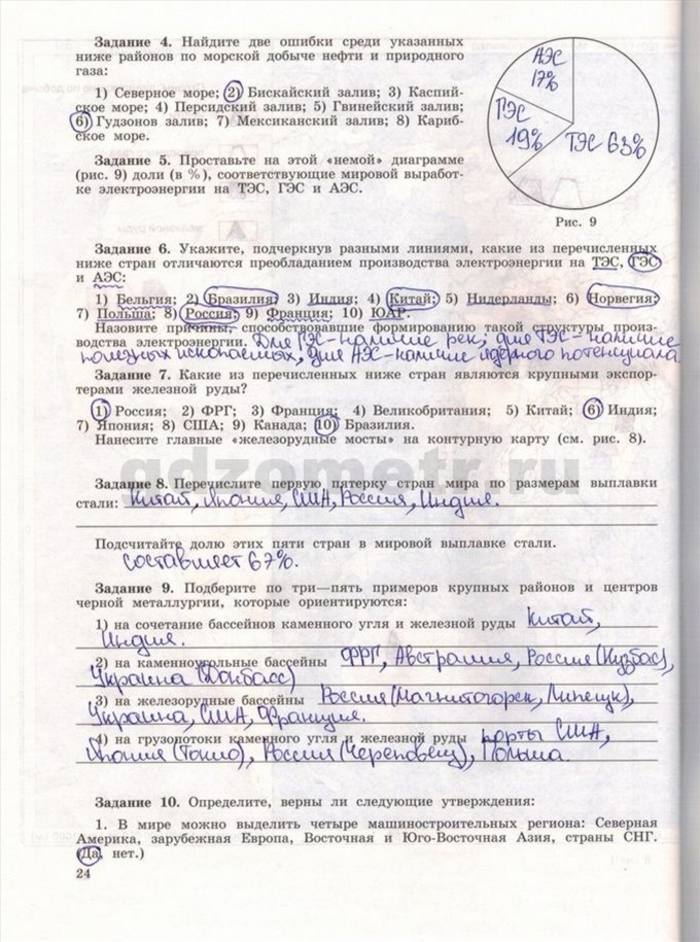 Задание 4. Найдите две ошибки среди указанных
ниже районов по морской добыче нефти и природного
газа:
1) Северное море; 2) Бискайский залив; 3) Каспий-
ское море; 4) Персидский залив; 5) Гвинейский залив;
6) Гудзонов залив; 7) Мексиканский залив; 8) Кариб-
ское море.
Задание 5. Проставьте на этой «немой» диаграмме
(рис. 9) доли (в %), соответствующие мировой выработ-
ке электроэнергии на ТЭС, ГЭС и АЭС.
АЭС
17%
ГЭС
19%
ТЭС 63%
Рис. 9
Задание 6. Укажите, подчеркнув разными линиями, какие из перечисленных
ниже стран отличаются преобладанием производства электроэнергии на ТЭС, ГЭС
и АЭС:
1) Бельгия; 2) Бразилия; 3) Индия; 4) Китай; 5) Нидерланды; 6) Норвегия;
7) Польша; 8) Россия; 9) Франция; 10) ЮАР.
Назовите причины, способствовавшие формированию такой структуры произ-
водства электроэнергии. Для ГЭС-наличие рек, для ТЭС-наличие
полезных ископаемых, для АЭС-наличие ядерного потенциала.
Задание 7. Какие из перечисленных ниже стран являются крупными экспор-
терами железной руды?
1) Россия; 2) ФРГ; 3) Франция; 4) Великобритания; 5) Китай; 6) Индия;
7) Япония; 8) США; 9) Канада; 10) Бразилия.
Нанесите главные «железорудные мосты» на контурную карту (см. рис. 8).
gdzometr.ru
Задание 8. Перечислите первую пятерку стран мира по размерам выплавки
стали: Китай, Япония, США, Россия, Индия.
Подсчитайте долю этих пяти стран в мировой выплавке стали.
составляет 67%.
Задание 9. Подберите по три—пять примеров крупных районов и центров
черной металлургии, которые ориентируются:
1) на сочетание бассейнов каменного угля и железной руды Китай,
Индия.
2) на каменноугольные бассейны ФРГ, Австралия, Россия (Кузбас),
Украина (Донбасс)
3) на железорудные бассейны Россия (Магнитогорск, Липецк),
Украина, США, Франция.
4) на грузопотоки каменного угля и железной руды порты США,
Япония (Токио), Россия (Череповец), Польша.
Задание 10. Определите, верны ли следующие утверждения:
1. В мире можно выделить четыре машиностроительных региона: Северная
Америка, зарубежная Европа, Восточная и Юго-Восточная Азия, страны СНГ.
(Да, нет.)
24